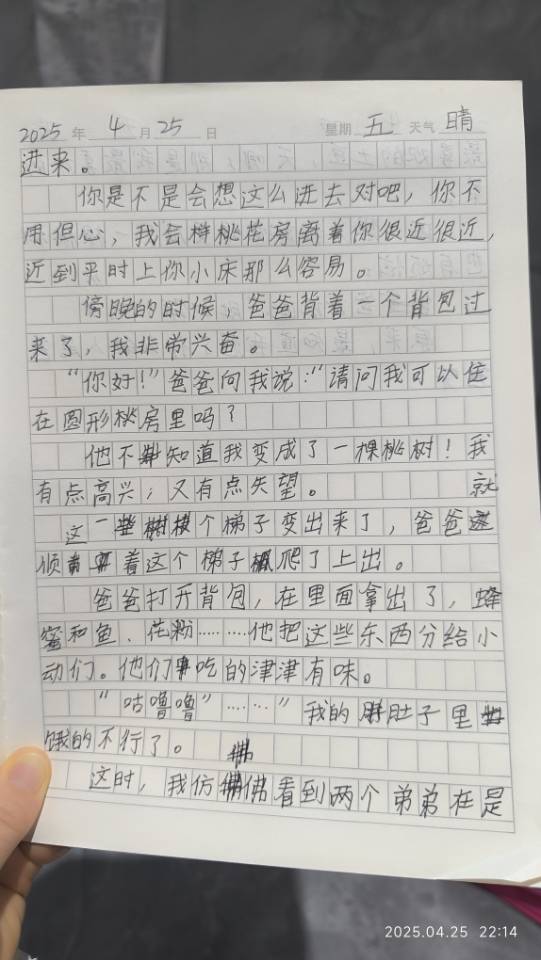 2025 年 4 月 25 日 星期 五 天气 晴
进来。
你是不是会想这么进去对吧，你不
用但心，我会样桃花房离着你很近很近，
近到平时上你小床那么容易。
傍晚的时候，爸爸背着一个背包过
来了，我非常兴奋。
“你好！”爸爸向我说：“请问我可以住
在圆形桃房里吗？
他不知道我变成了一棵桃树！我
有点高兴；又有点失望。 就
这一个梯子变出来了，爸爸
顺着这个梯子爬了上出。
爸爸打开背包，在里面拿出了，蜂
蜜和鱼、花粉……他把这些东西分给小
动们。他们吃的津津有味。
“咕噜噜”……”我的肚子里
饿的不行了。
这时，我仿佛看到两个弟弟在是
2025.04.25 22:14